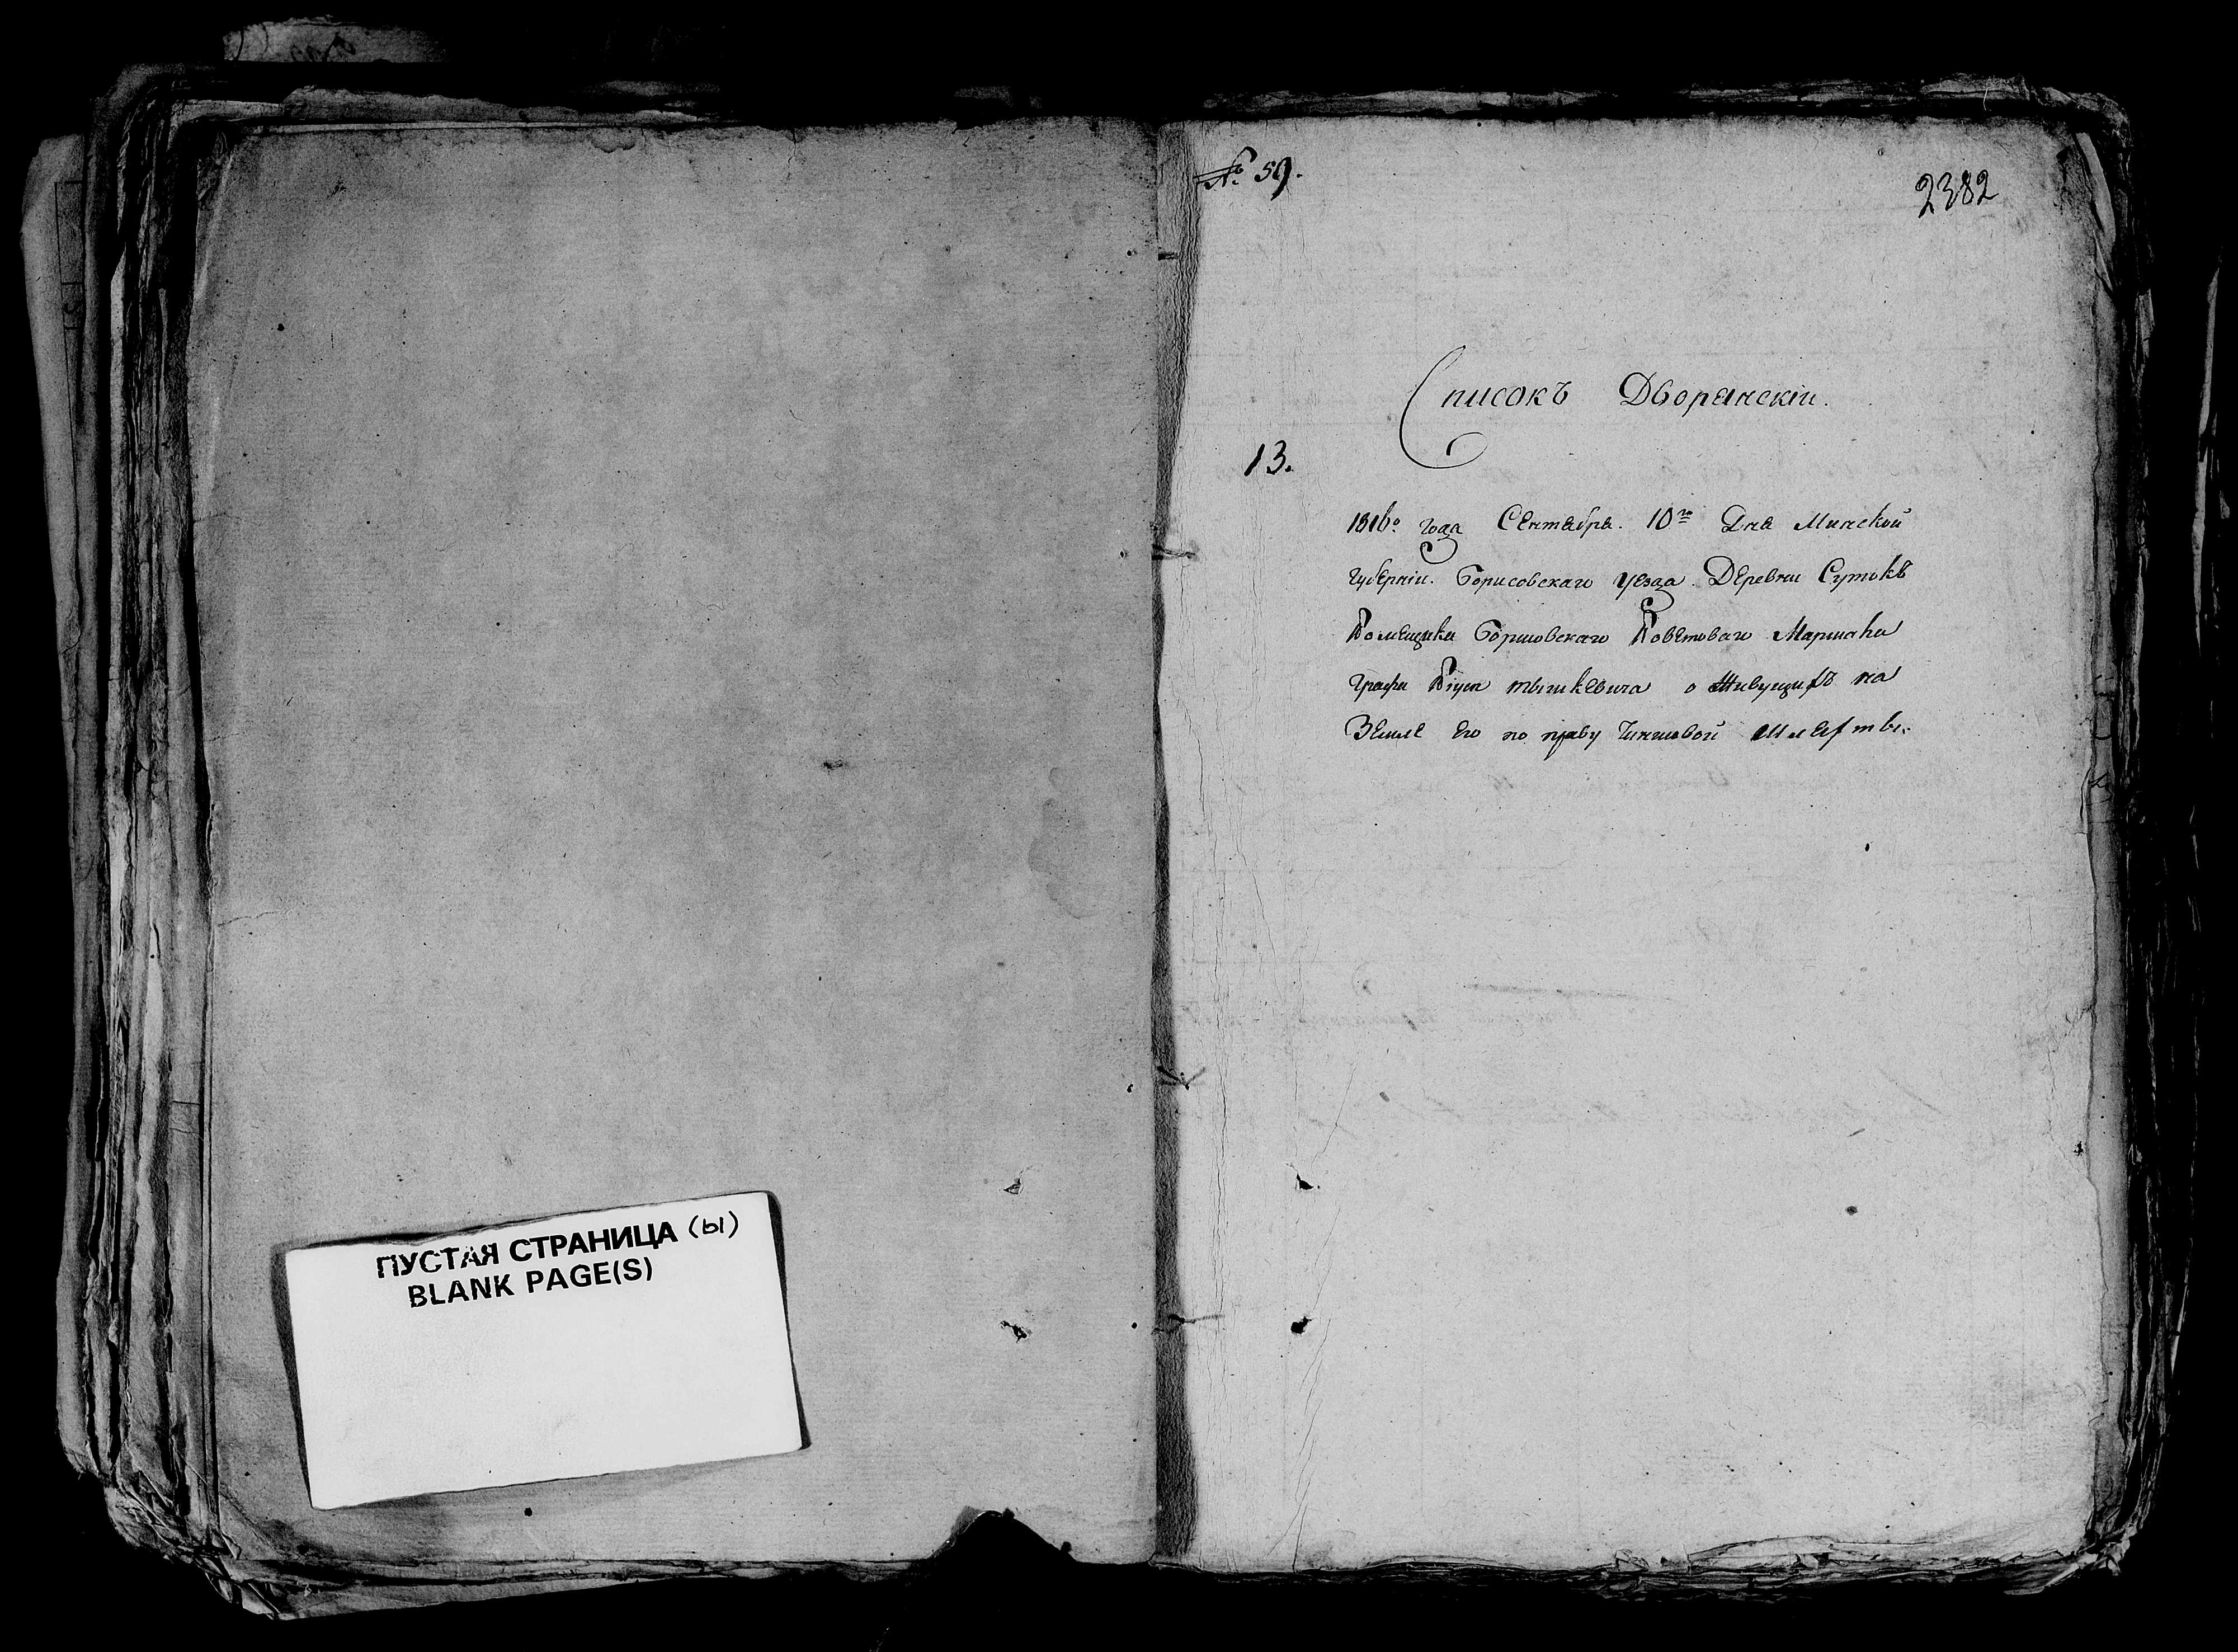 ПУСТАЯ СТРАНИЦА (ы)
BLANK PAGE(S)
№ 59.
2382
Списокъ Дворянскiи.
13.
1816го года Сентября 10го Дня Минской
губернiи. Борисовскаго уезда Деревни Сутокъ
Помещика Борисовскаго Поветоваго Маршала
Графа Пiуса тышкевича о Живущихъ на
Земле его по праву Чиншовой Шляхты.